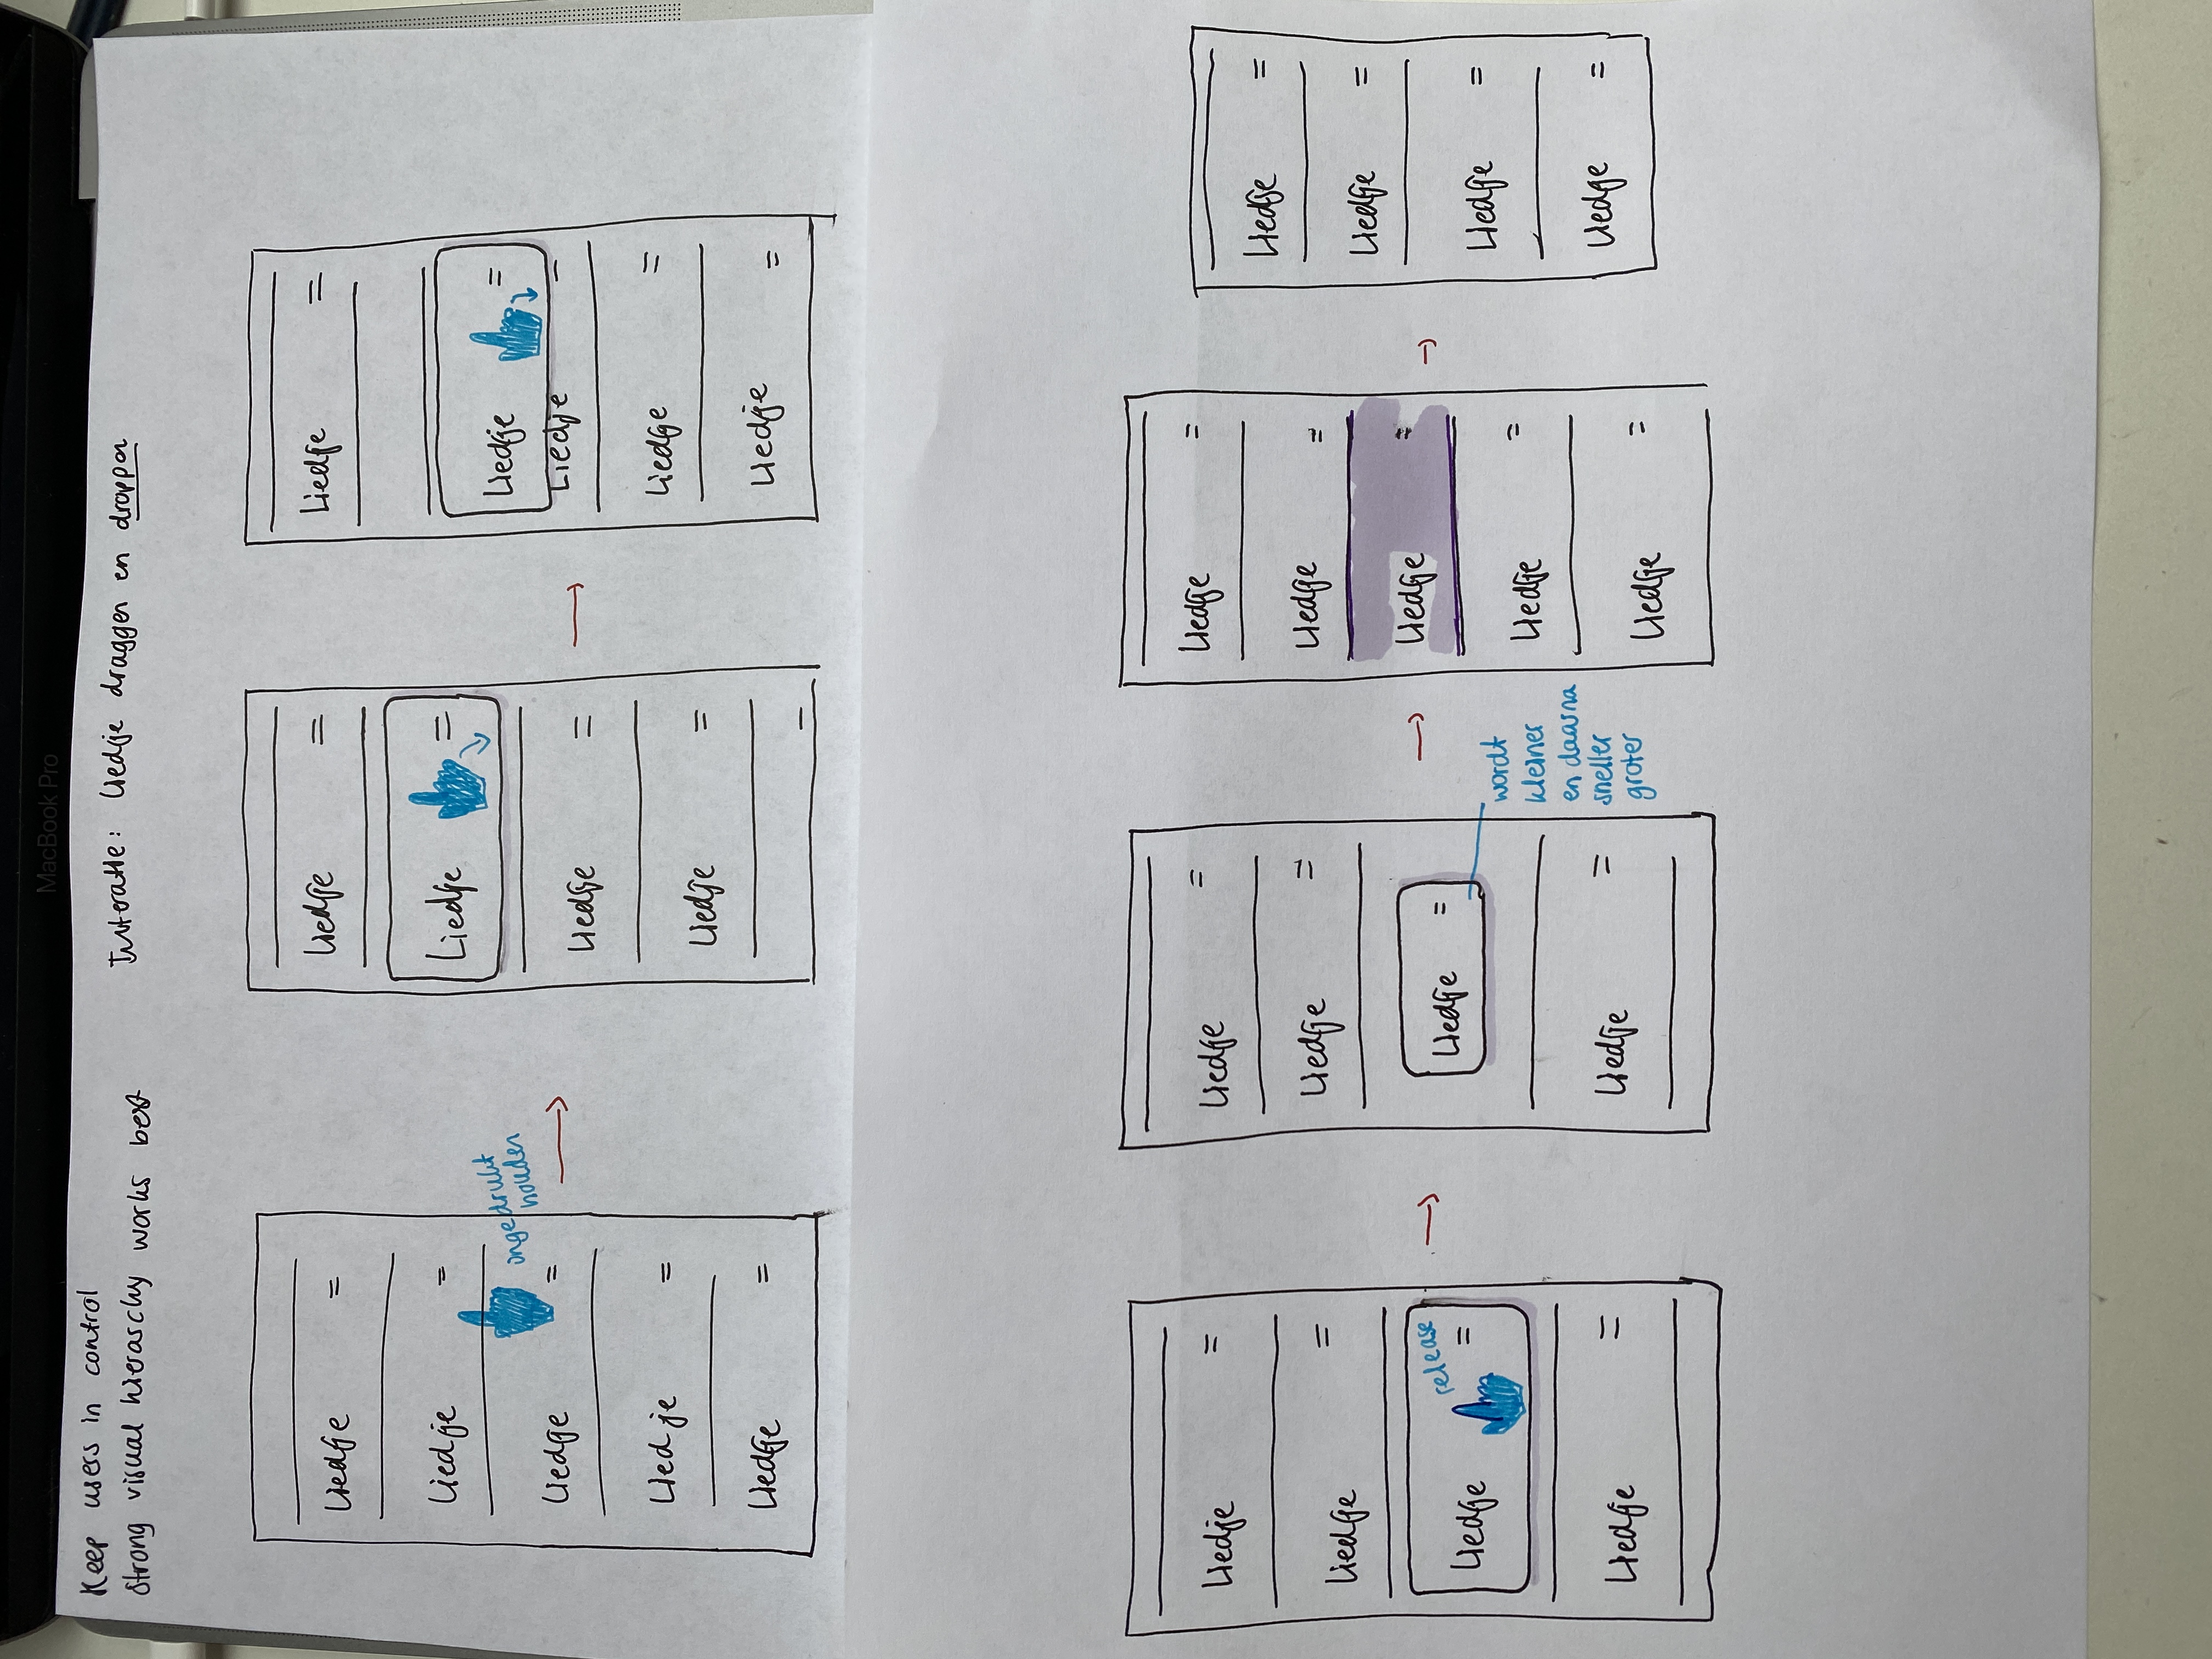 MacBook Pro
Keep users in control
strong visual hierarchy works best
Interactie: Liedje draggen en droppen
Liedje =
Liedje =
Liedje =
Liedje =
Liedje =
ongedrukt
houden
Liedje =
Liedje =
Liedje =
Liedje =
=
Liedje =
Liedje =
Liedje =
Liedje =
Liedje =
Liedje =
Liedje =
release
Liedje =
Liedje =
Liedje =
Liedje =
Liedje =
Liedje =
wordt
kleiner
en daarna
sneller
groter
Liedje =
Liedje =
Liedje =
Liedje =
Liedje =
Liedje =
Liedje =
Liedje =
Liedje =